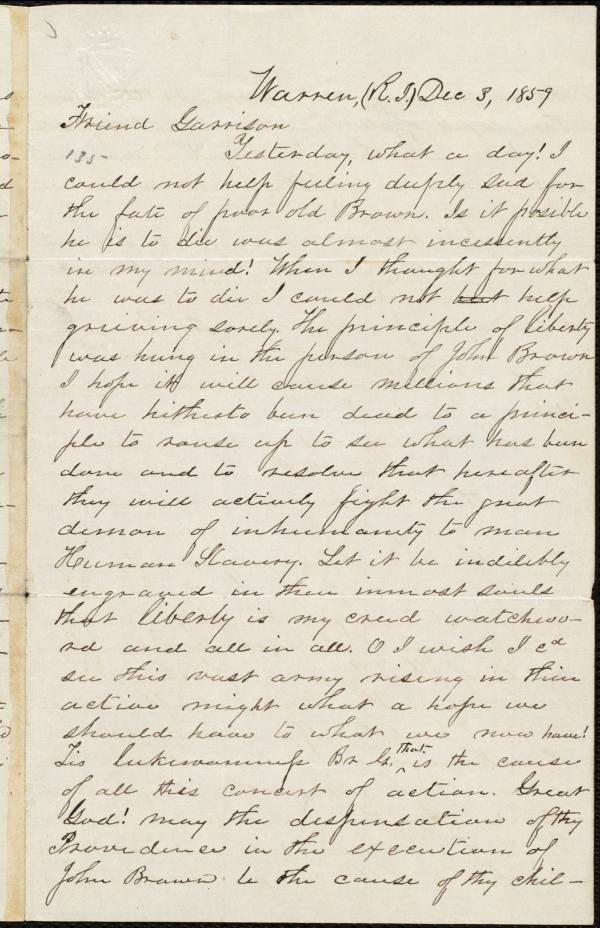 Warren, (R.I.) Dec 3, 1859
Friend Garrison
135
Yesterday, what a day! I
could not help feeling deeply sad for
the fate of poor old Brown. Is it posible
he is to die was almost incessently
in my mind! When I thought for what
he was to die I could not but help
grieving sorely. The principle of liberty
was hung in the person of John Brown
I hope it will cause millions that
have hitherto been dead to a princi-
ple to rouse up to see what has been
done and to resolve that hereafter
they will actively fight the great
demon of inhumanity to man
Human Slavery. Let it be indelibly
engraved in their inmost souls
that liberty is my creed watchwo-
rd and all in all. O I wish I cd
see this vast army rising in their
active might what a hope we
should have to what we now have!
Tis lukewarmness Br G. that is the cause
of all this concert of action. Great
God! may the dispensation of thy
Providence in the execution of
John Brown be the cause of thy chil-